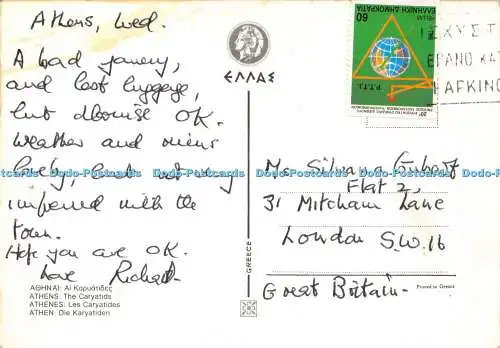 Athens, Wed.
A bad journey,
and lost luggage,
but otherwise OK.
Weather and views
lovely, but not very
impressed with the
town.
Hope you are OK.
Love Richard.
ΑΘΗΝΑΙ: Αί Καρυάτιδες
ATHENS: The Caryatids
ATHENES: Les Caryatides
ATHEN: Die Karyatiden
ΕΛΛΑΣ
GREECE
60
ΕΛΛΗΝΙΚΗ ΔΗΜΟΚΡΑΤΙΑ
HELLAS
P.T.T.I.
ΕΡΑΝΟ ΚΑ
ΑΡΚΙΝΟ
Flat 2,
31 Mitcham Lane
London S.W.16
Great Britain.
Printed in Greece
Dodo-Postcards Dodo-Postcards Dodo-Postcards Dodo-Postcards